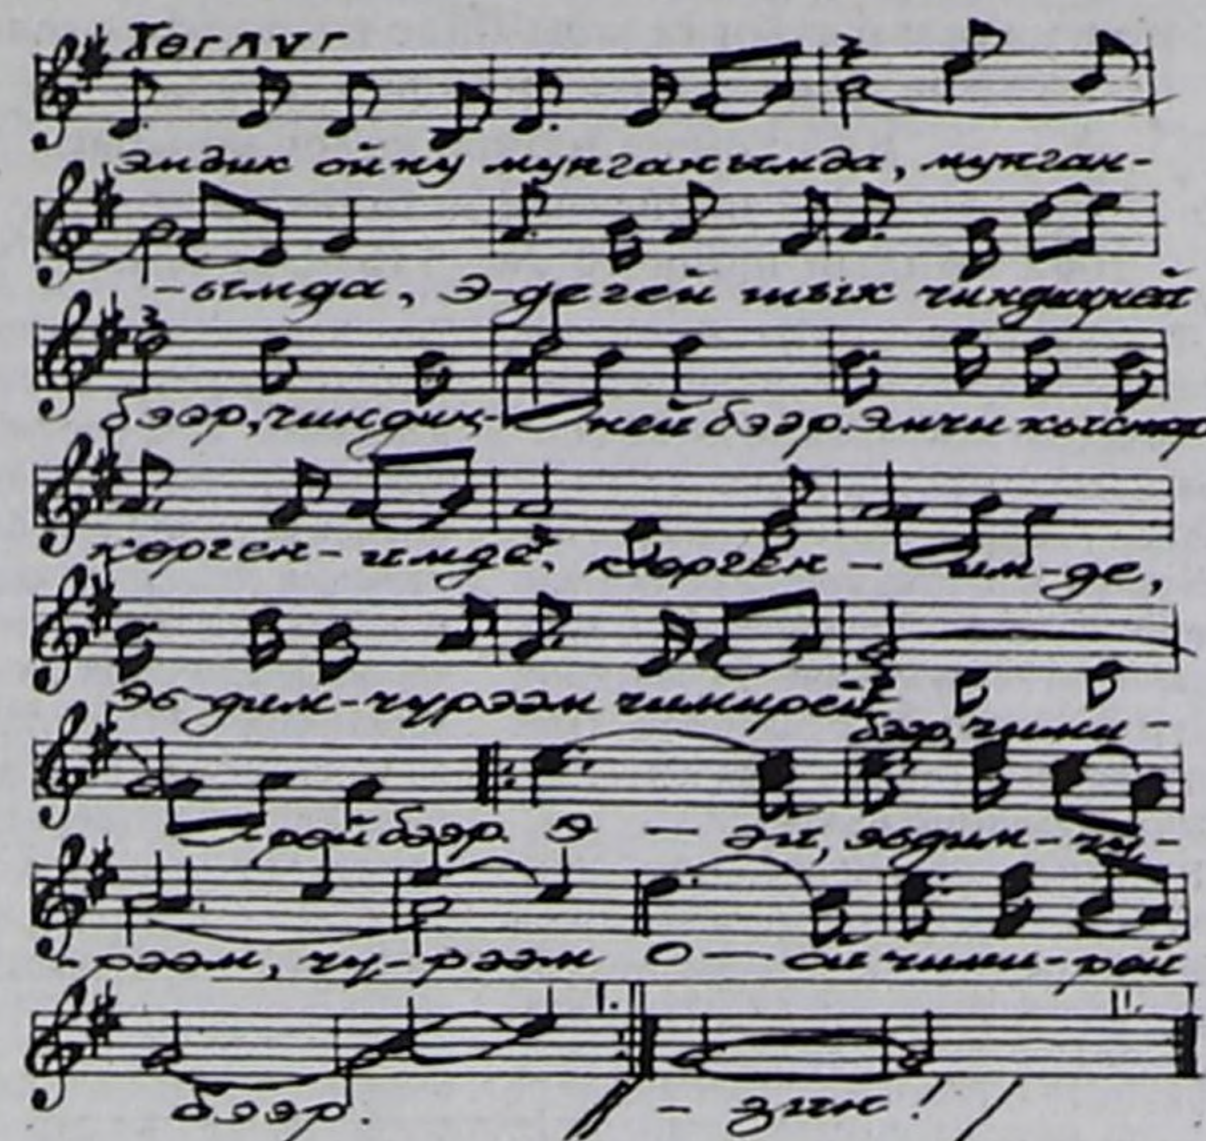 Хөглүг
эмдик ойну мунганымда, мунган-
-ымда, Э-дегей шык чиндиңней
бээр, чиндиң- ней бээр. Эмчи кыстар
көрген-имде, көрген - им-де,
эъ-дим-чүрээм чимирей
бээр, чими-
-рей бээр. Э — эй, эъдим-чү-
-рээм, чү-рээм О — ой чими-рей
бээр. - зин!